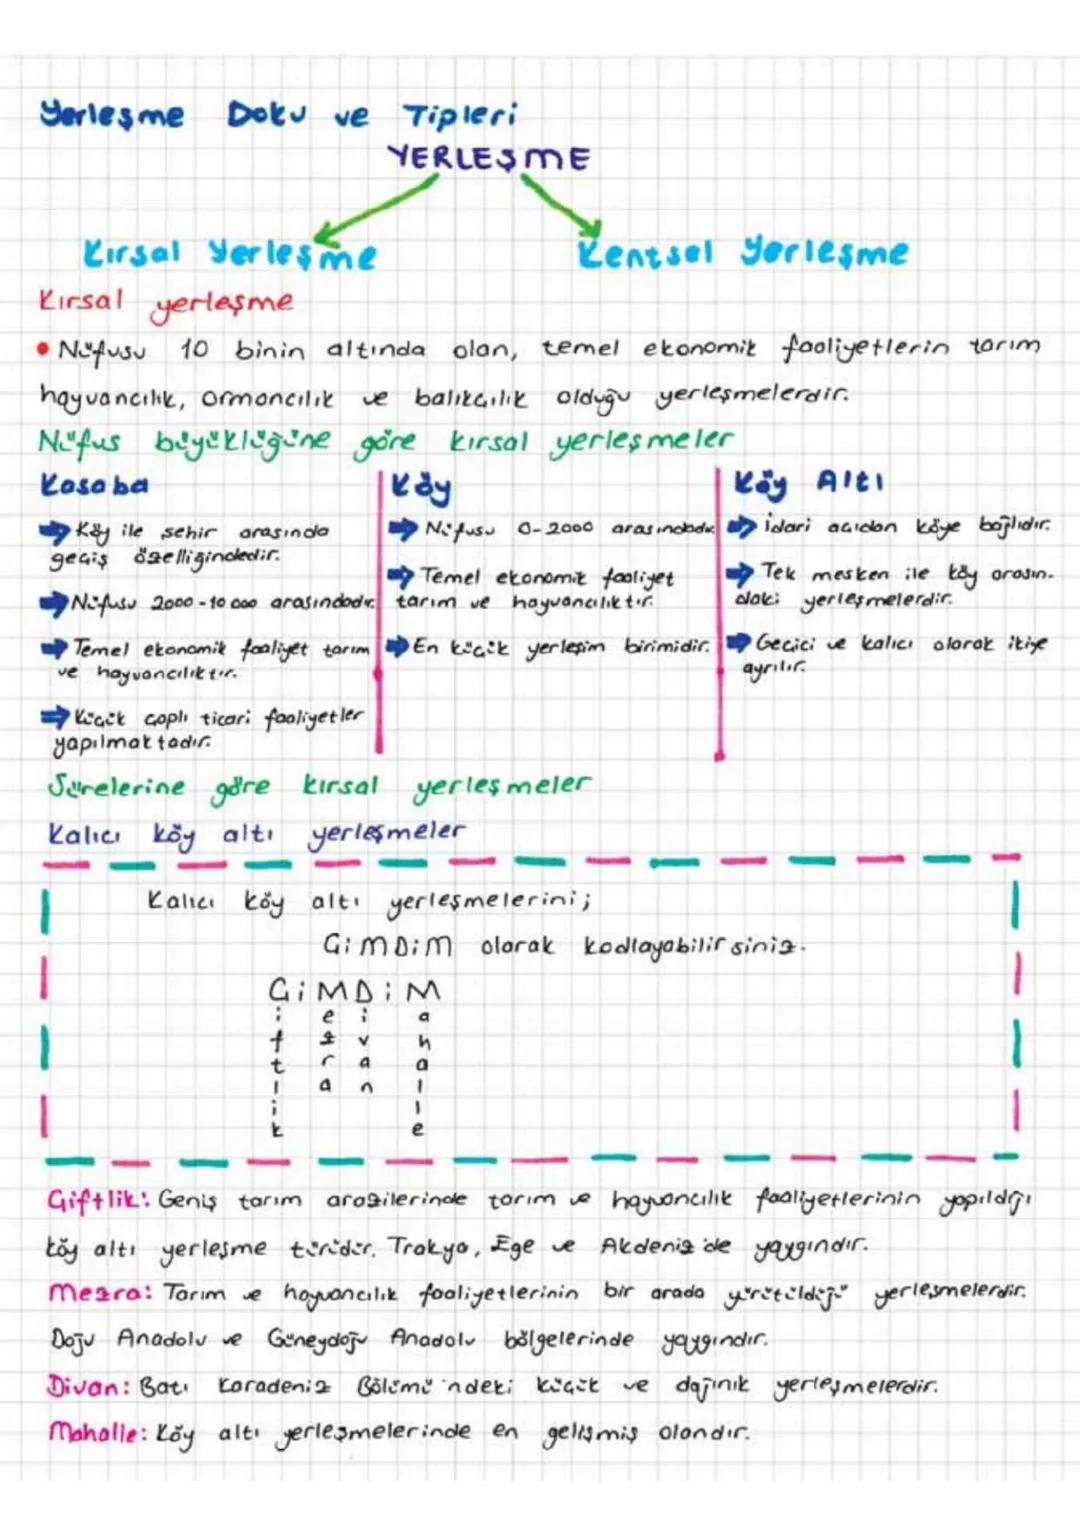 Yerleşme Doku ve Tipleri
YERLEŞME
Kırsal Yerleşme
Kentsel Yerleşme
Kırsal yerleşme
• Nüfusu 10 binin altında olan, temel ekonomik faaliyetlerin tarım
hayvancılık, ormancılık ve balıkçılık olduğu yerleşmelerdir.
Nüfus büyüklüğüne göre kırsal yerleşmeler
Kasaba
➡ Köy ile şehir arasında
geçiş özelliğindedir.
➡ Nüfusu 2000-10 000 arasındadır.
➡ Temel ekonomik faaliyet tarım
ve hayvancılıktır.
➡ Küçük çaplı ticari faaliyetler
yapılmaktadır.
Köy
➡ Nüfusu 0-2000 arasındadır.
➡ Temel ekonomik faaliyet
tarım ve hayvancılıktır.
➡ En küçük yerleşim birimidir.
Köy Altı
➡ İdari açıdan köye bağlıdır.
➡ Tek mesken ile köy arasın-
daki yerleşmelerdir.
➡ Geçici ve kalıcı olarak ikiye
ayrılır.
Sürelerine göre kırsal yerleşmeler
Kalıcı köy altı yerleşmeler
Kalıcı köy altı yerleşmelerini;
ÇiMDiM olarak kodlayabilirsiniz.
ÇiMDiM
Çiftlik
Mezra
Divan
Mahalle
Çiftlik: Geniş tarım arazilerinde tarım ve hayvancılık faaliyetlerinin yapıldığı
köy altı yerleşme türüdür. Trakya, Ege ve Akdeniz'de yaygındır.
Mezra: Tarım ve hayvancılık faaliyetlerinin bir arada yürütüldüğü yerleşmelerdir.
Doğu Anadolu ve Güneydoğu Anadolu bölgelerinde yaygındır.
Divan: Batı Karadeniz Bölümü'ndeki küçük ve dağınık yerleşmelerdir.
Mahalle: Köy altı yerleşmelerinde en gelişmiş olandır.